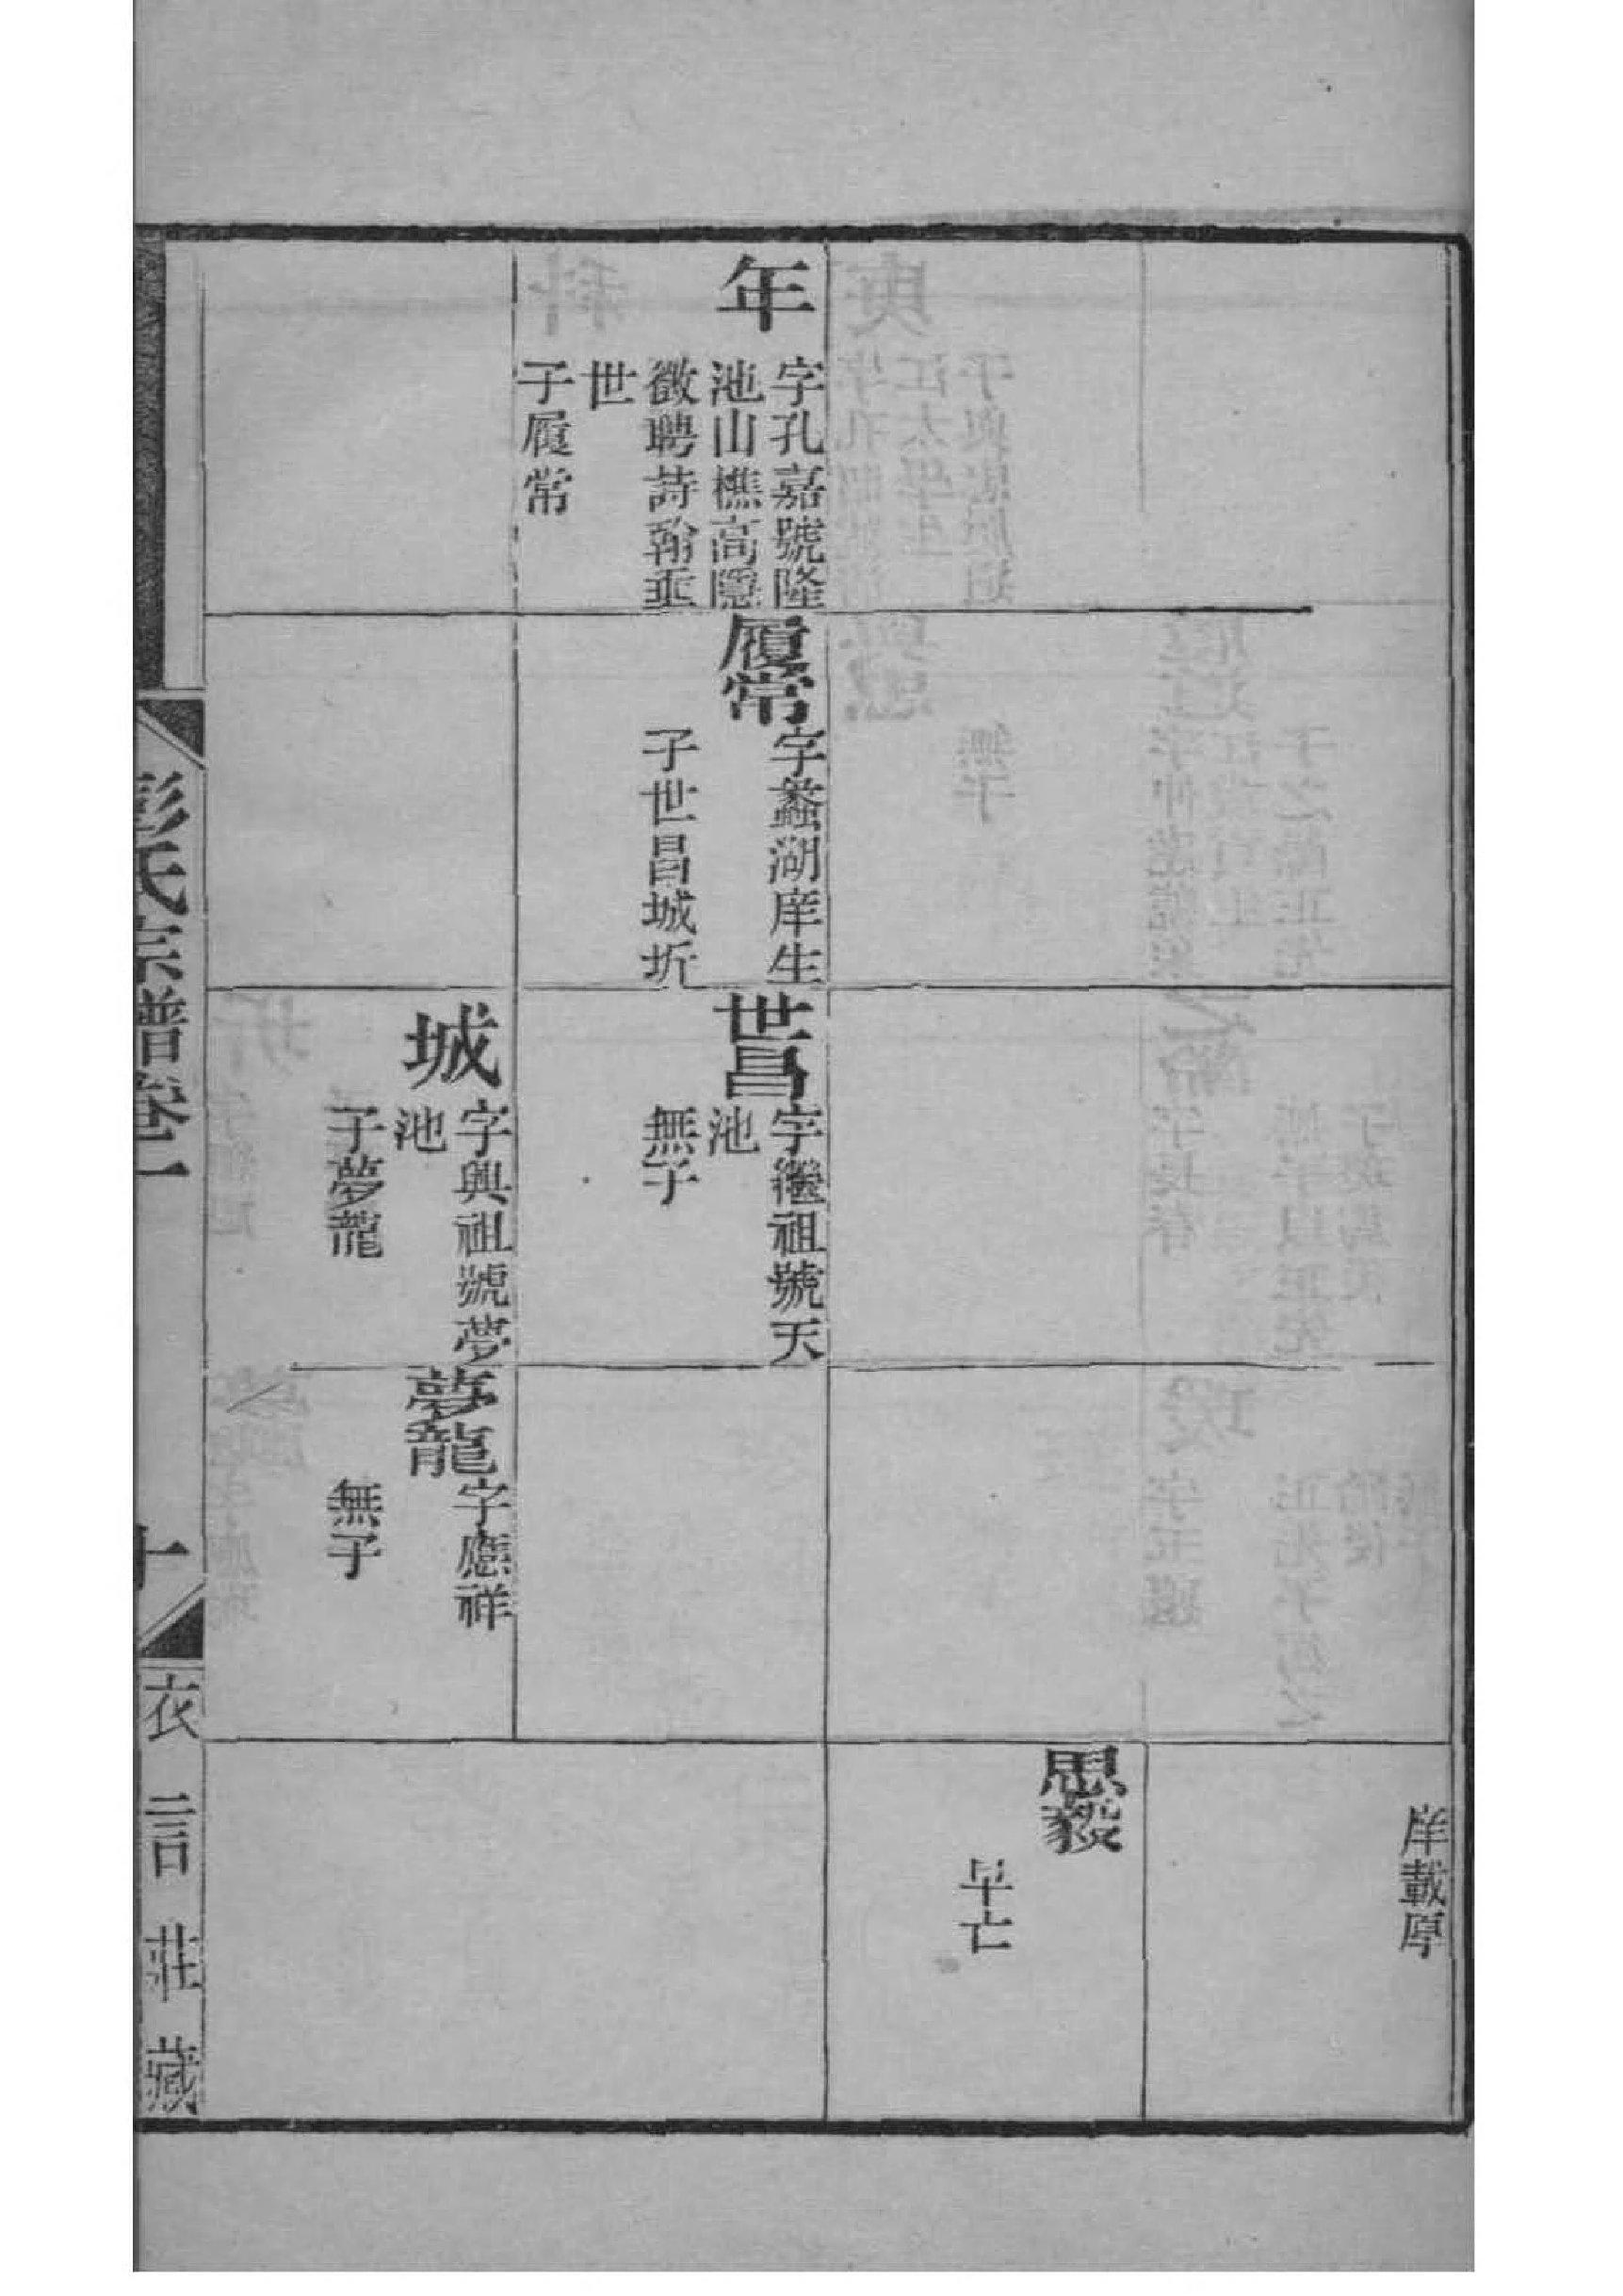 庠載厚
思毅
早亡
年
字孔嘉號隆
池山樵高隱
徵聘詩翰垂
世
子履常
履常
字蠡湖庠生
子世昌城圻
世昌
字繼祖號天
池
無子
城
字興祖號夢
池
子夢龍
夢龍
字應祥
無子
彭氏宗譜卷一
十
衣言莊藏